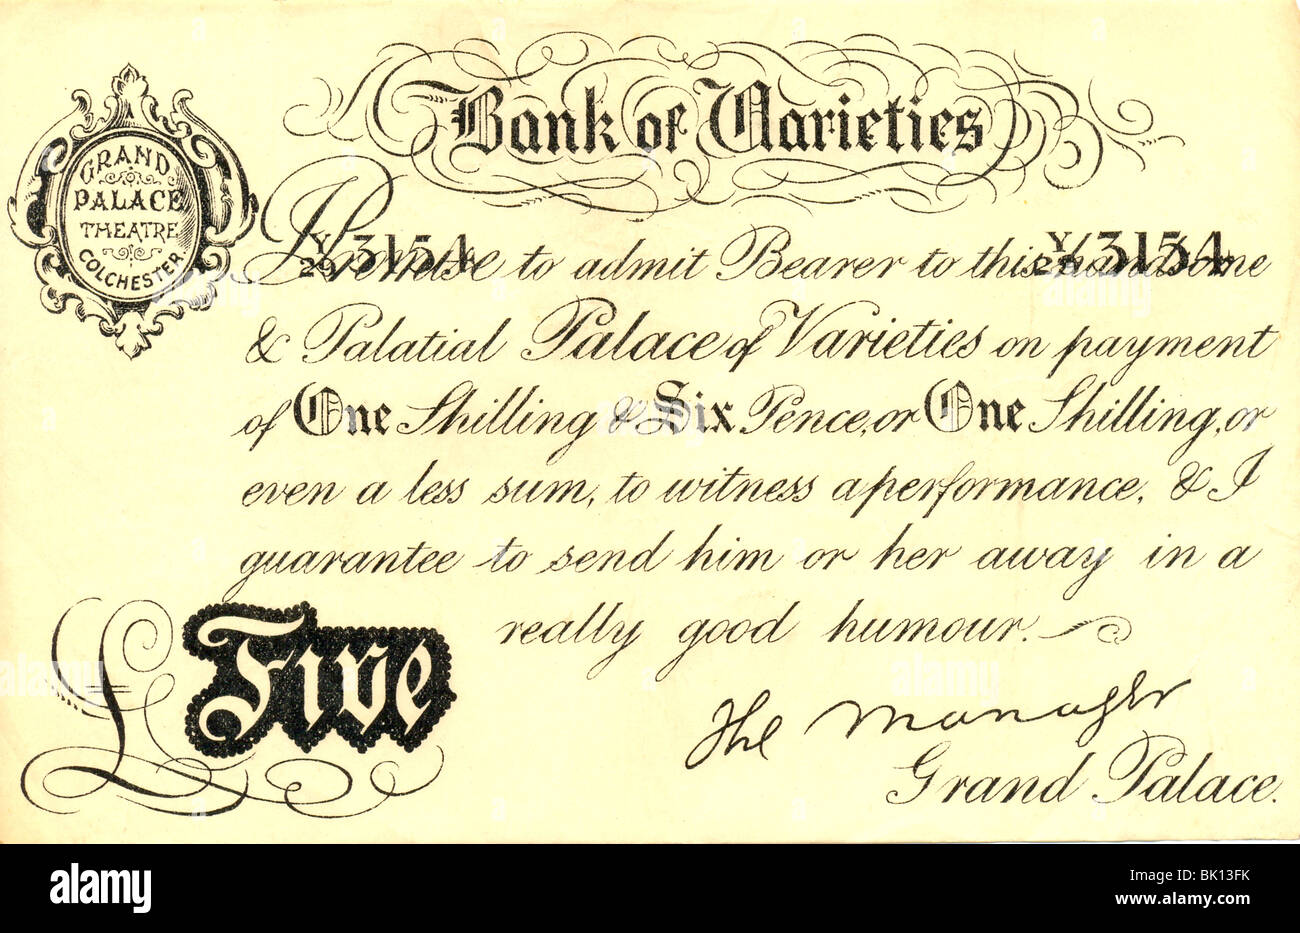 Bank of Varieties
GRAND
PALACE
THEATRE
COLCHESTER.
Y/29 3154
Y/29 3154
I Promise to admit Bearer to this handsome
& Palatial Palace of Varieties on payment
of One Shilling & Six Pence, or One Shilling, or
even a less sum, to witness a performance, & I
guarantee to send him or her away in a
really good humour.
£ Five
The Manager
Grand Palace.
alamy
Image ID: BK13FK
www.alamy.com